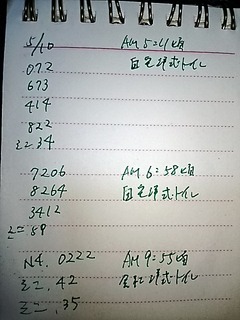 5/10 AM 5:41頃
072 自宅洋式トイレ
673
414
822
ミニ34
7206 AM 6:58頃
8264 自宅洋式トイレ
3412
ミニ 89
N4. 0222 AM 9:55頃
ミニ. 42 会社洋式トイレ
ミニ. 35